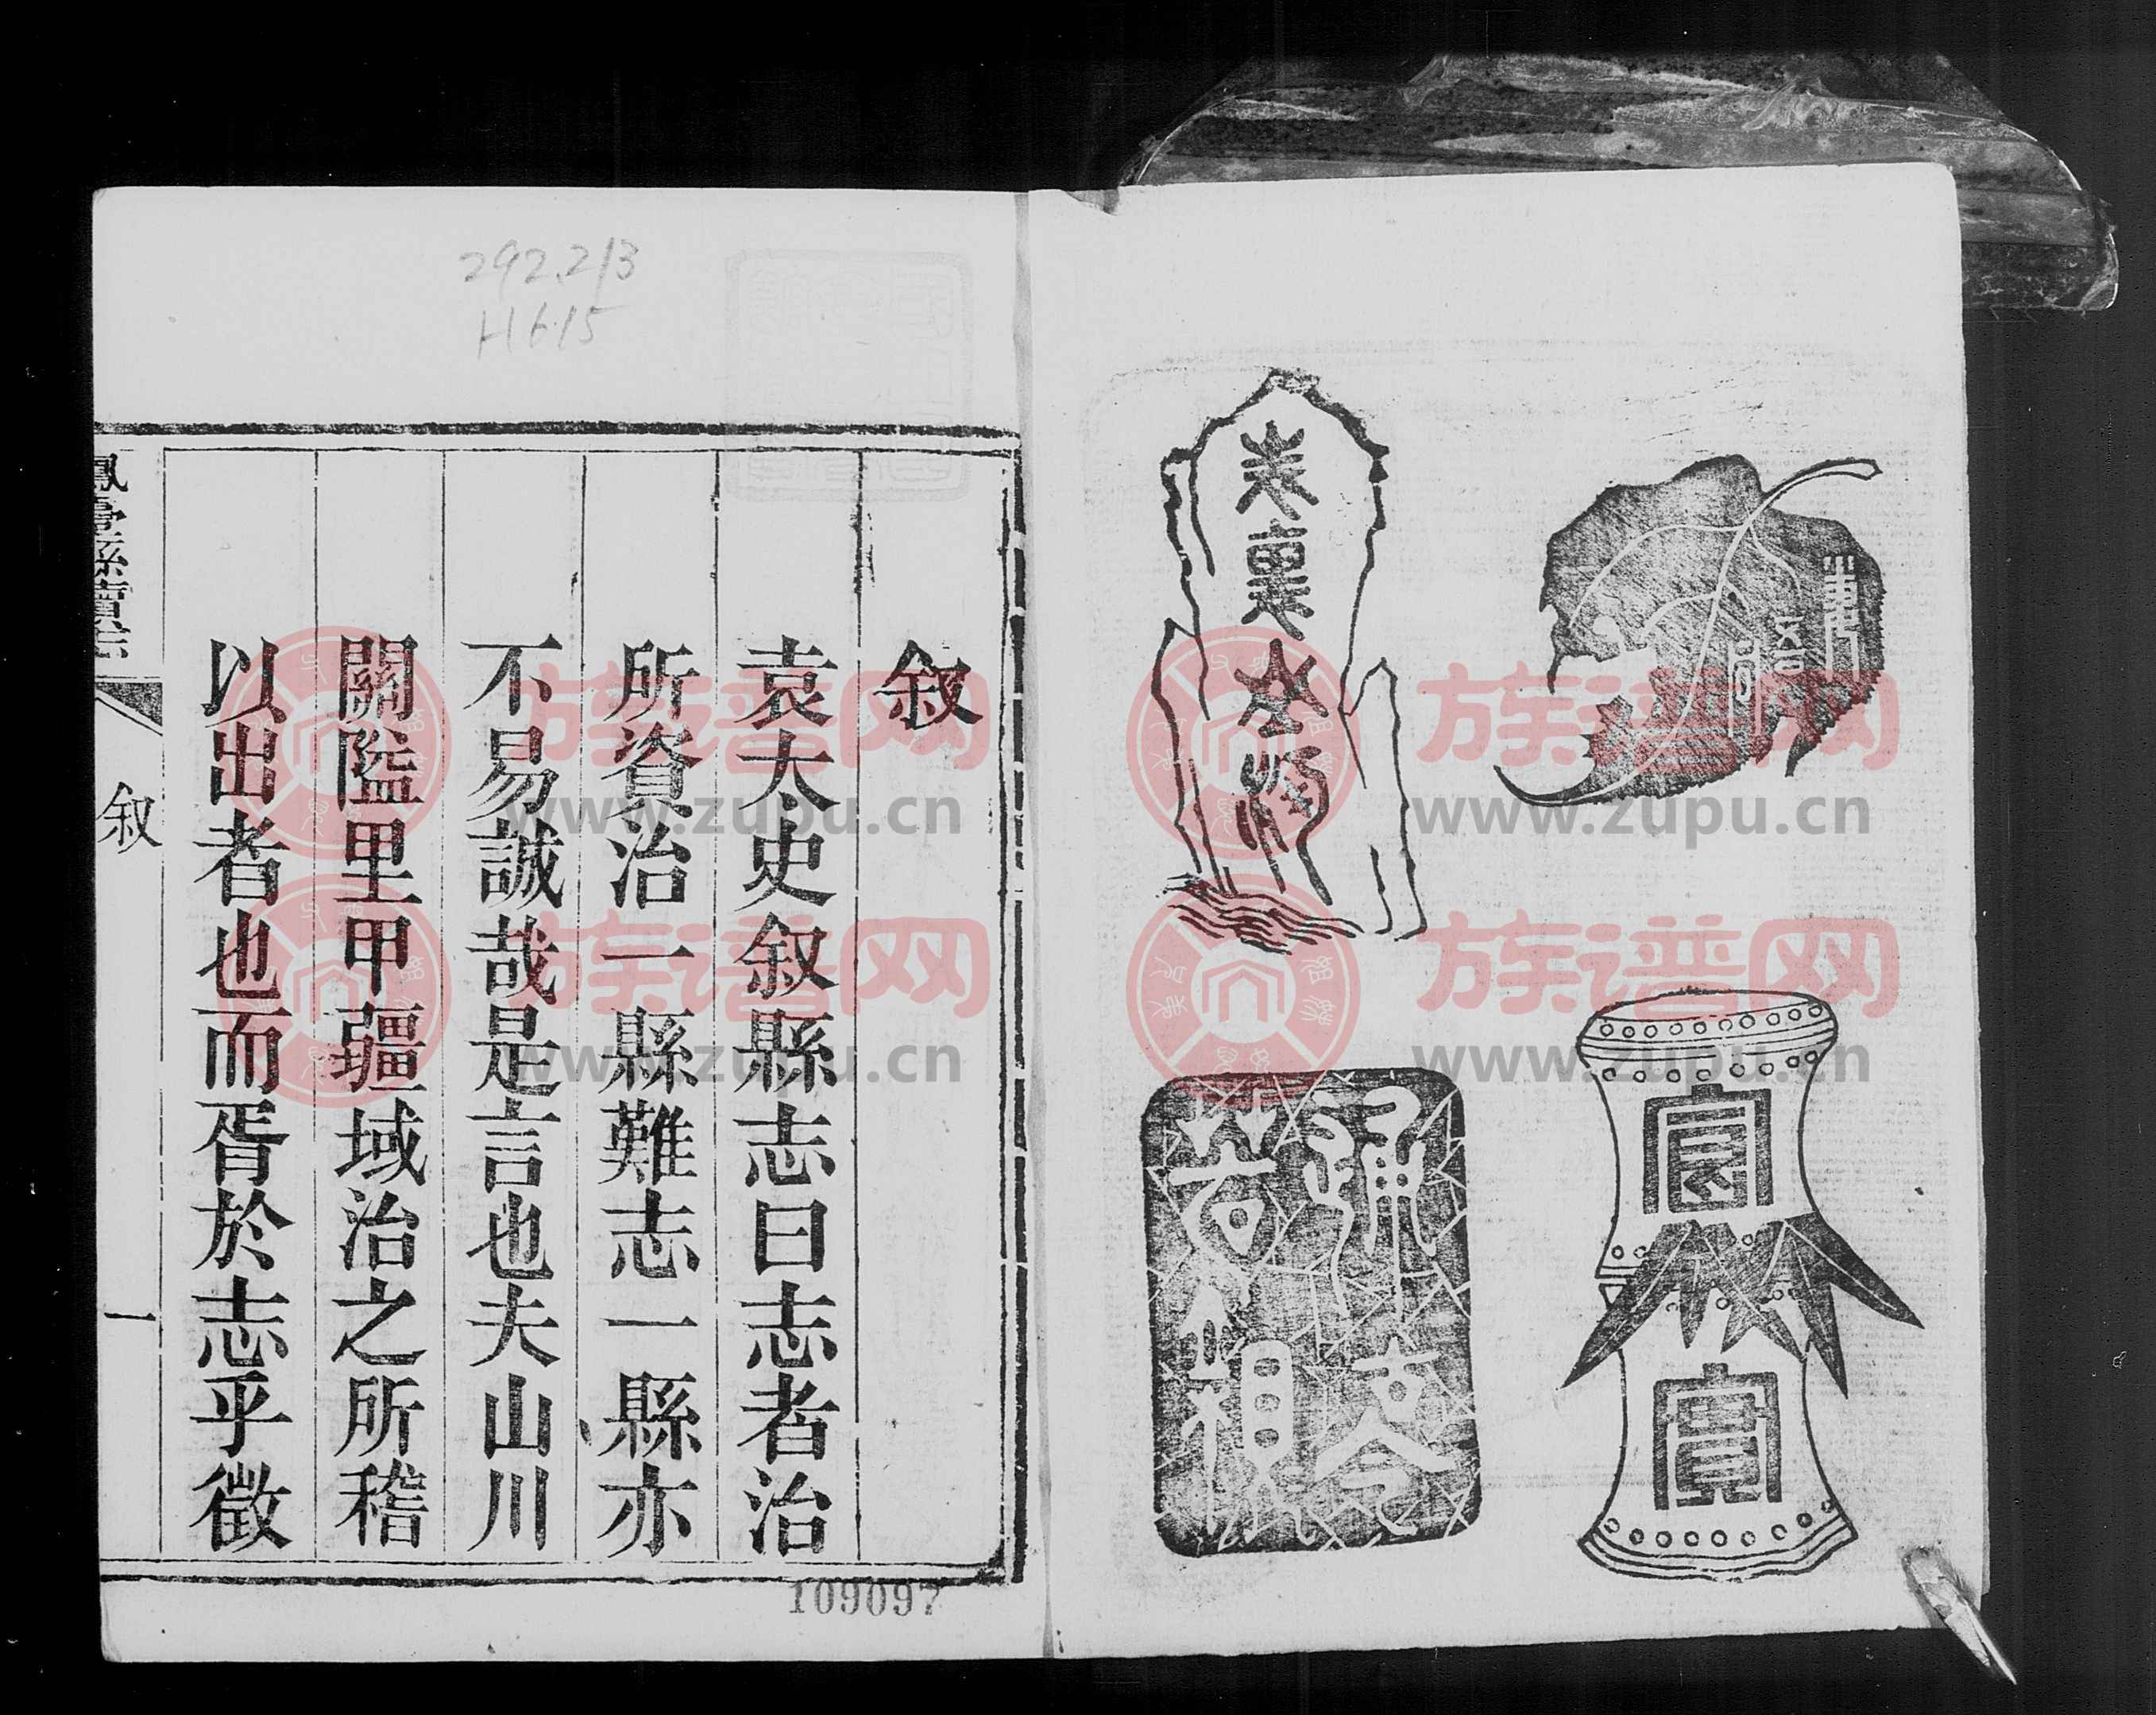 292.213
H615
叙
袁太史叙縣志曰志者治
所資治一縣難志一縣亦
不易誠哉是言也夫山川
關隘里甲疆域治之所稽
以出者也而胥於志乎徵
鳳臺縣續志
叙
一
109097
族谱网
www.zupu.cn
族谱网
www.zupu.cn
族谱网
www.zupu.cn
族谱网
www.zupu.cn